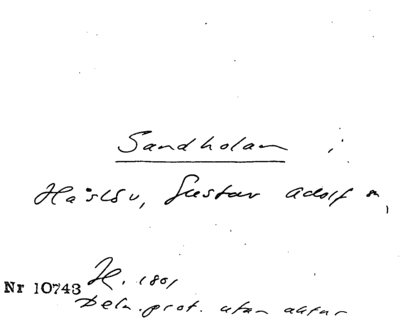 Sandholan
Håslöv, Gustav Adolf
Nr 10743 1801
Deln. prot. utan